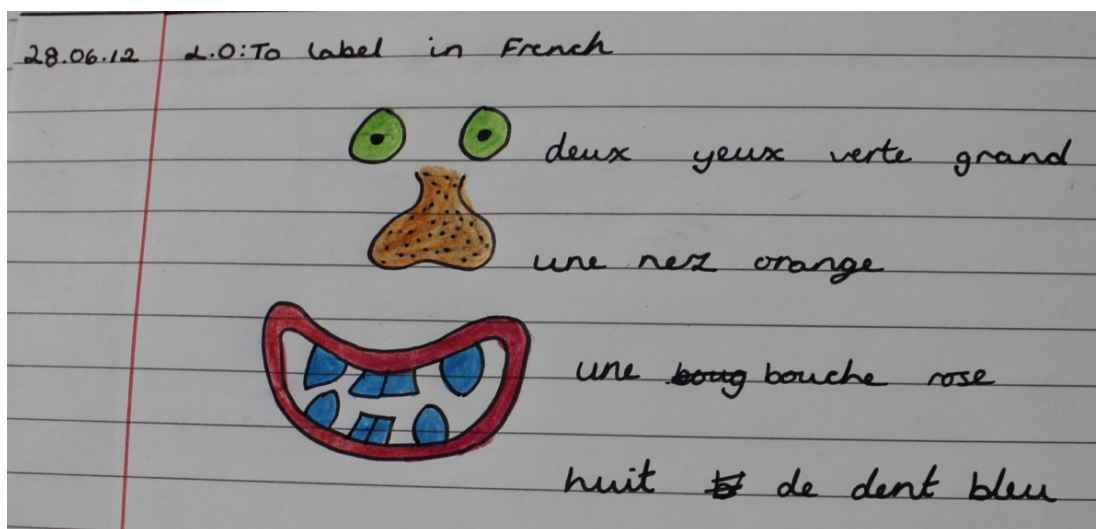 28.06.12 L.O:To label in French
deux yeux verte grand
une nez orange
une boug bouche rose
huit de dent bleu